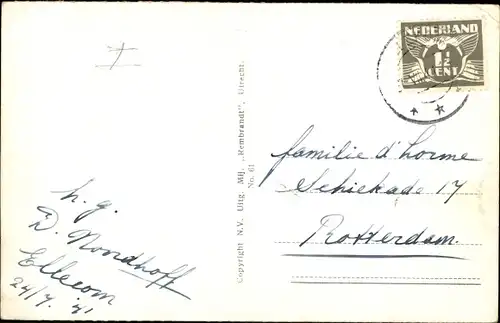 NEDERLAND
1½
CENT
h. g.
D. Noordhoff
Ellecom
24/7 '41
Copyright N.V. Uitg. Mij. „Rembrandt", Utrecht.
No. 61
familie d'horme
Schiekade 17
Rotterdam.